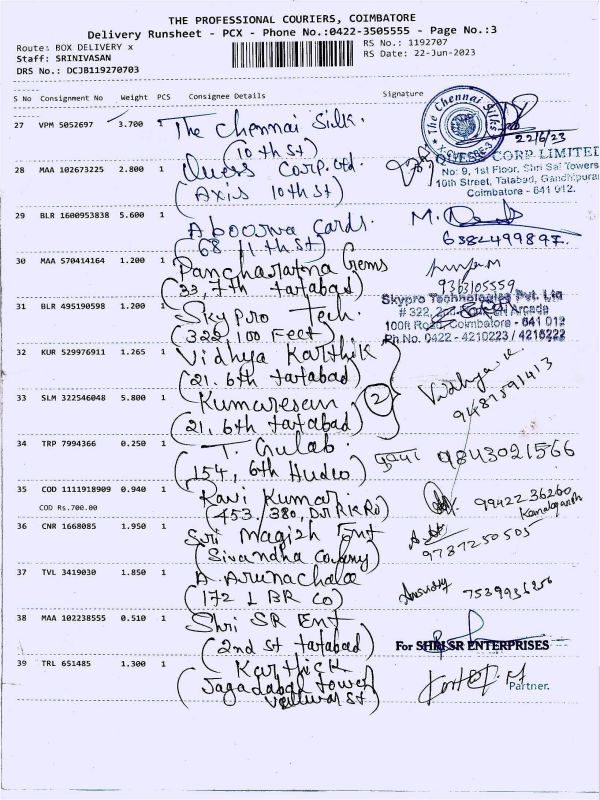 THE PROFESSIONAL COURIERS, COIMBATORE
Delivery Runsheet - PCX - Phone No.:0422-3505555 - Page No.:3
Route: BOX DELIVERY x
Staff: SRINIVASAN
DRS No.: DCJB119270703
RS No.: 1192707
RS Date: 22-Jun-2023
S No Consignment No Weight PCS Consignee Details Signature
27 VPM 5052697 3.700 1 The Chennai Silk.
(10th St)
The Chennai Silks
22/6/23
28 MAA 102673225 2.800 1 Quess Corp. Ltd.
(Axis 10th St)
CORP LIMITED
No: 9, 1st Floor, Shri Sai Towers
10th Street, Tatabad, Gandhipuram
Coimbatore - 641 012.
29 BLR 1600953838 5.600 1 Aboorva Cards.
(68 11th St)
6382499897.
30 MAA 570414164 1.200 1 Pancharatna Gems
(33, 7th tatabad)
9363105559
31 BLR 495190598 1.200 1 Skypro Tech.
(322, 100 Feet)
Skypro Technologies Pvt. Ltd
# 322, 2nd Floor, Arcade
100ft Road, Coimbatore - 641 012
Ph.No. 0422 - 4210223 / 4216222
32 KUR 529976911 1.265 1 Vidhya Karthik
(21. 6th tatabad)
Vidhya K
9487591413
33 SLM 322546048 5.800 1 Kumaresan
(21, 6th tatabad)
2
34 TRP 7994366 0.250 1 T. Gulab
(154, 6th Hudco)
9843021566
35 COD 1111918909 0.940 1 Ravi Kumar
COD Rs.700.00 (453/380, Dr RKRd)
9942236260
36 CNR 1668085 1.950 1 Sri Magizh Ent
(Sivandha Colony)
9787250505
37 TVL 3419030 1.850 1 A. Arunachala
(172 L BR Co)
7539936256
38 MAA 102238555 0.510 1 Shri SR Ent
(2nd St tatabad)
For SHRI SR ENTERPRISES
39 TRL 651485 1.300 1 Karthick
(Jagadabal tower
Valluvar St)
Partner.